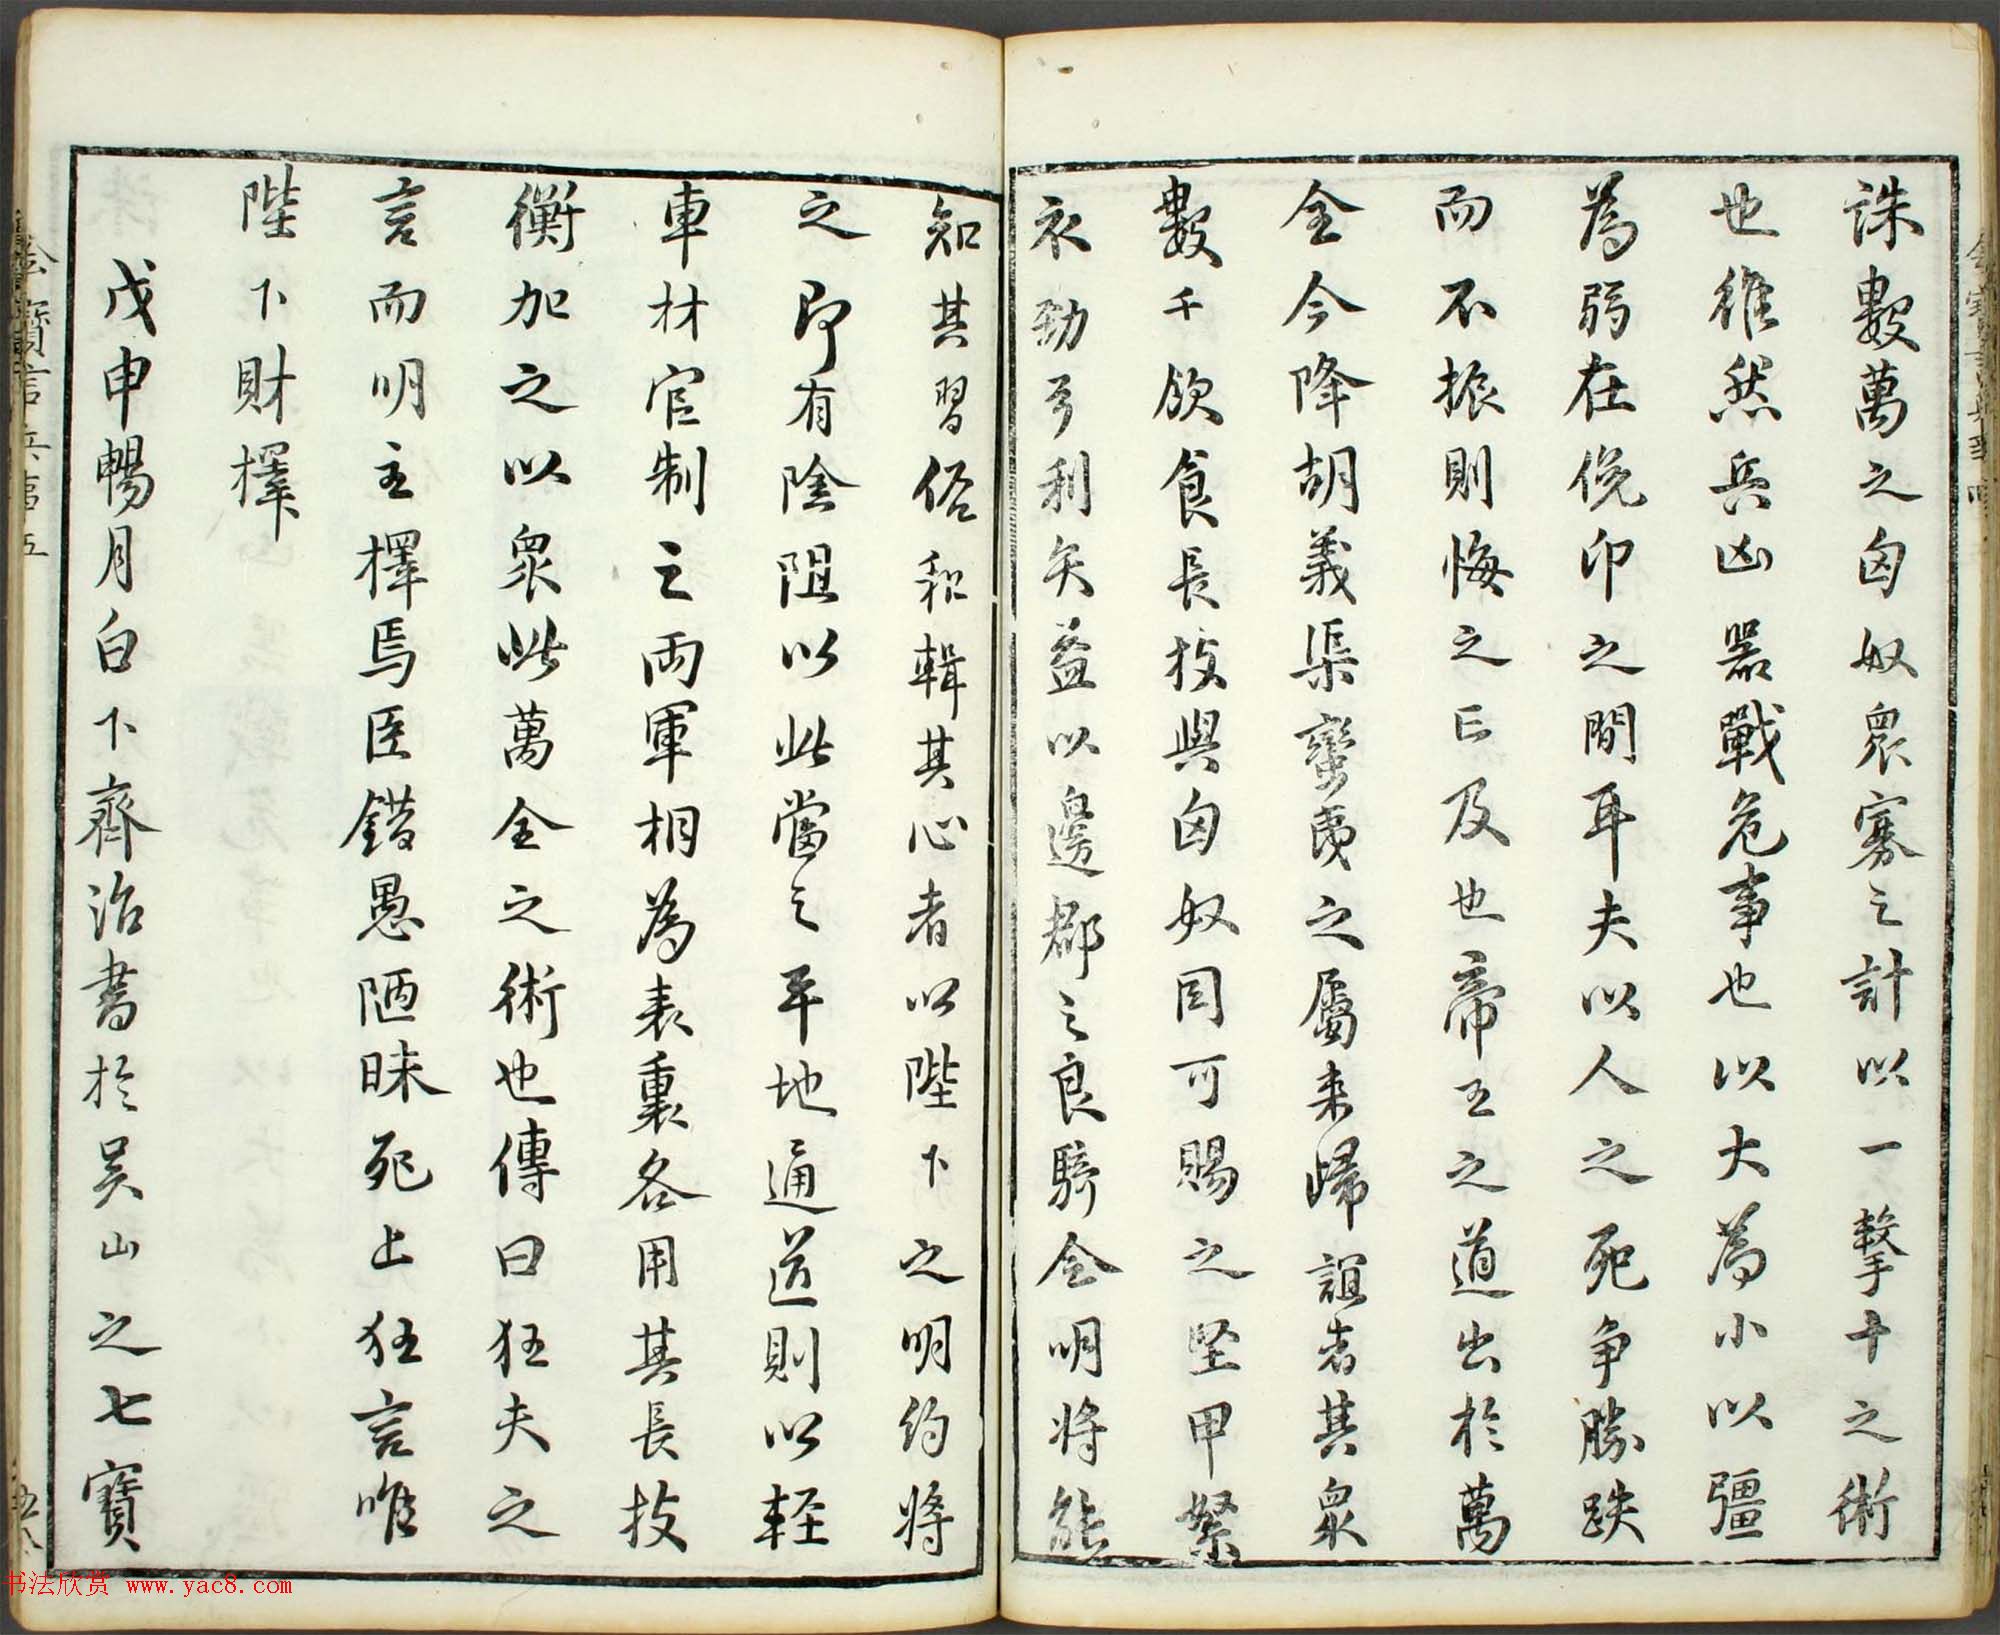 誅數萬之匈奴眾寡之計以一擊十之術
也雖然兵凶器戰危事也以大為小以彊
為弱在俛卬之間耳夫以人之死爭勝跌
而不振則悔之亡及也帝王之道出於萬
全今降胡義渠蠻夷之屬来歸誼者其眾
數千飲食長技與匈奴同可賜之堅甲絮
衣勁弓利矢益以邊郡之良騎令明將能
知其習俗和輯其心者以陛下之明約將
之即有險阻以此當之平地通道則以軽
車材官制之兩軍相為表裏各用其長技
衡加之以眾此萬全之術也傳曰狂夫之
言而明主擇焉臣錯愚陋昧死上狂言唯
陛下財擇
戊申暢月白下齊治書於吴山之七寶
書法欣赏 www.yac8.com